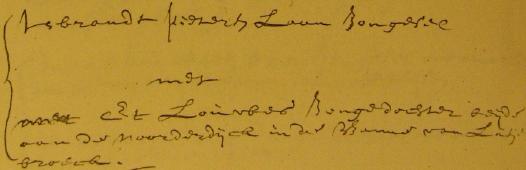 Isbrandt pieters Laan Jongesel
met
Et Louwes Jongedochter beijde
aan de noorderdijck in de Banne van Lutje
broeck.